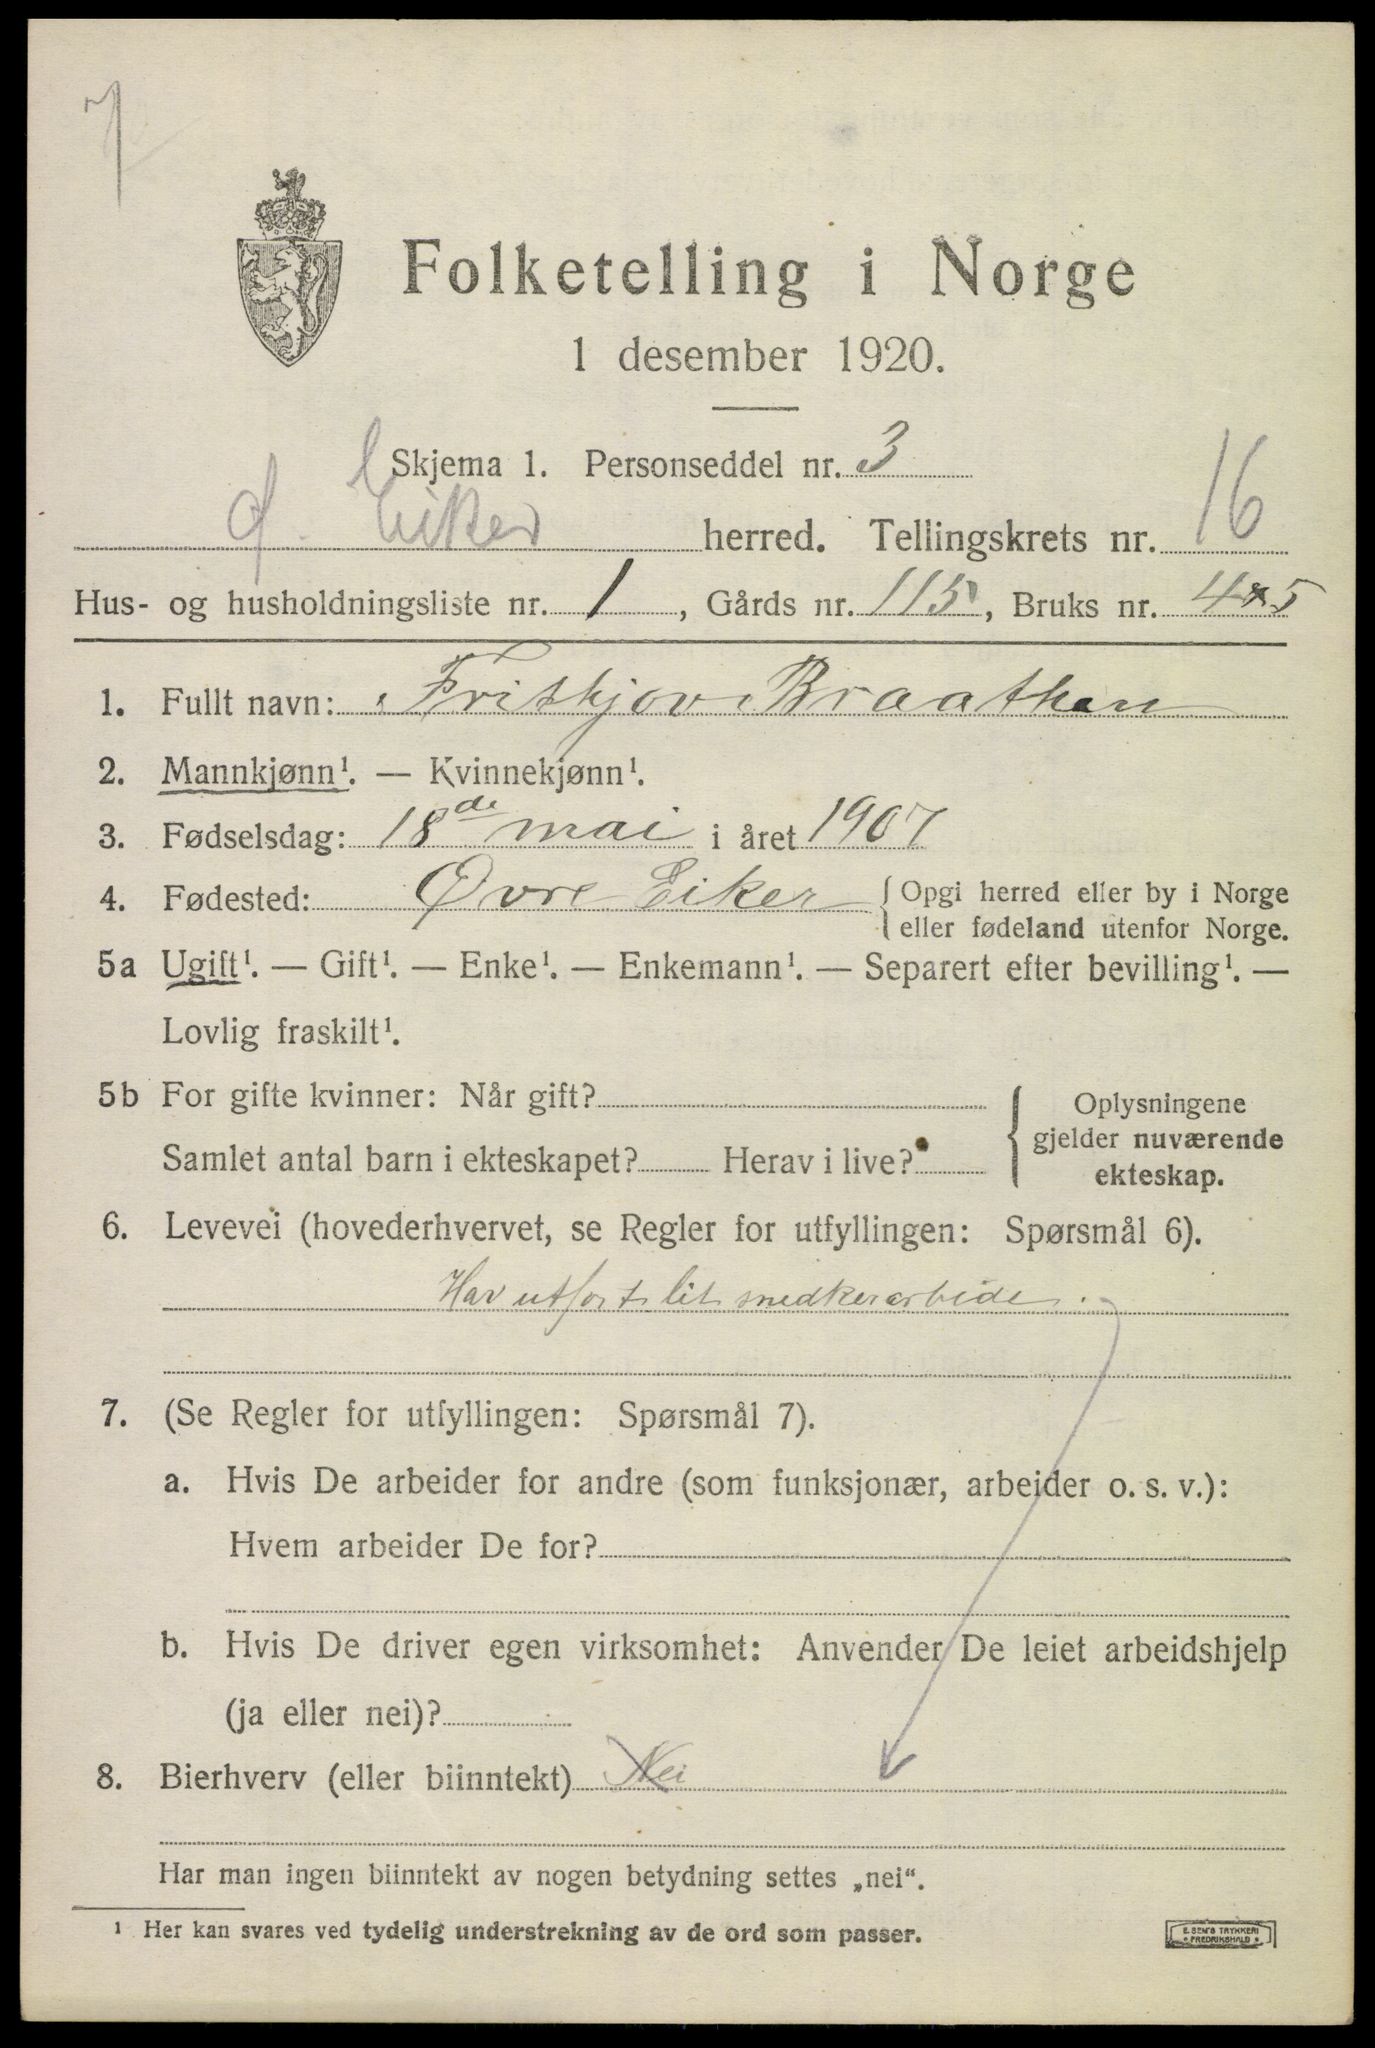 7
Folketelling i Norge
1 desember 1920.
Skjema 1. Personseddel nr. 3
Ø. Eiker herred. Tellingskrets nr. 16
Hus- og husholdningsliste nr. 1, Gårds nr. 115, Bruks nr. 4 x 5
1. Fullt navn: Frithjov Braathen
2. Mannkjønn¹. — Kvinnekjønn¹.
3. Fødselsdag: 18de mai i året 1907
4. Fødested: Øvre Eiker { Opgi herred eller by i Norge
eller fødeland utenfor Norge.
5a Ugift¹. — Gift¹. — Enke¹. — Enkemann¹. — Separert efter bevilling¹. —
Lovlig fraskilt¹.
5b For gifte kvinner: Når gift?
Samlet antal barn i ekteskapet? Herav i live?
{ Oplysningene
gjelder nuværende
ekteskap.
6. Levevei (hovederhvervet, se Regler for utfyllingen: Spørsmål 6).
Har utført lit snedkerarbide.
7. (Se Regler for utfyllingen: Spørsmål 7).
a. Hvis De arbeider for andre (som funksjonær, arbeider o. s. v.):
Hvem arbeider De for?
b. Hvis De driver egen virksomhet: Anvender De leiet arbeidshjelp
(ja eller nei)?
8. Bierhverv (eller biinntekt) Nei
Har man ingen biinntekt av nogen betydning settes „nei“.
¹ Her kan svares ved tydelig understrekning av de ord som passer.
E. SEM'S TRYKKERI
FREDRIKSHALD